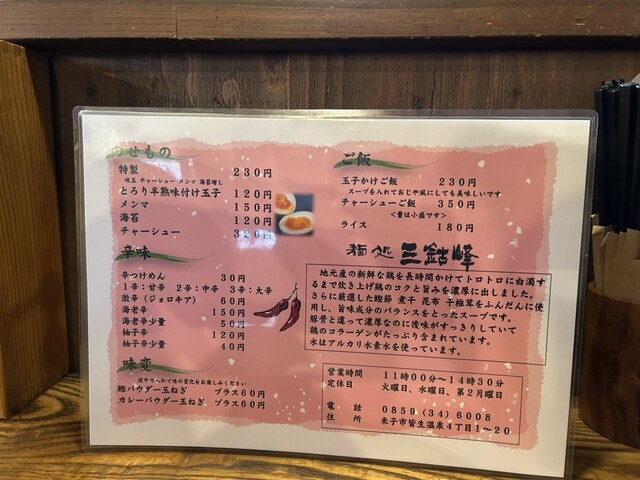 のせもの
特製 230円
味玉 チャーシュー メンマ 海苔増し
とろり半熟味付け玉子 120円
メンマ 150円
海苔 120円
チャーシュー 320円
辛味
辛つけめん 30円
1辛：甘辛 2辛：中辛 3辛：大辛
激辛（ジョロキア） 60円
海老辛 150円
海老辛少量 50円
柚子辛 120円
柚子辛少量 40円
味変
途中で入れて味の変化をお楽しみください
鰹パウダー玉ねぎ プラス60円
カレーパウダー玉ねぎ プラス60円
ご飯
玉子かけご飯 230円
スープを入れておじや風にしても美味しいです
チャーシューご飯 350円
＜量は小盛です＞
ライス 180円
麺処 三鈷峰
地元産の新鮮な鶏を長時間かけてトロトロに白濁す
るまで炊き上げ鶏のコクと旨みを濃厚に出しました。
さらに厳選した鰹節 煮干 昆布 干椎茸をふんだんに使
用し、旨味成分のバランスをとったスープです。
豚骨と違って濃厚なのに後味がすっきりしていて
鶏のコラーゲンがたっぷり含まれています。
水はアルカリ水素水を使っています。
営業時間 11時00分～14時30分
定休日 火曜日、水曜日、第2月曜日
電話 0859（34）6008
住所 米子市皆生温泉4丁目1～20